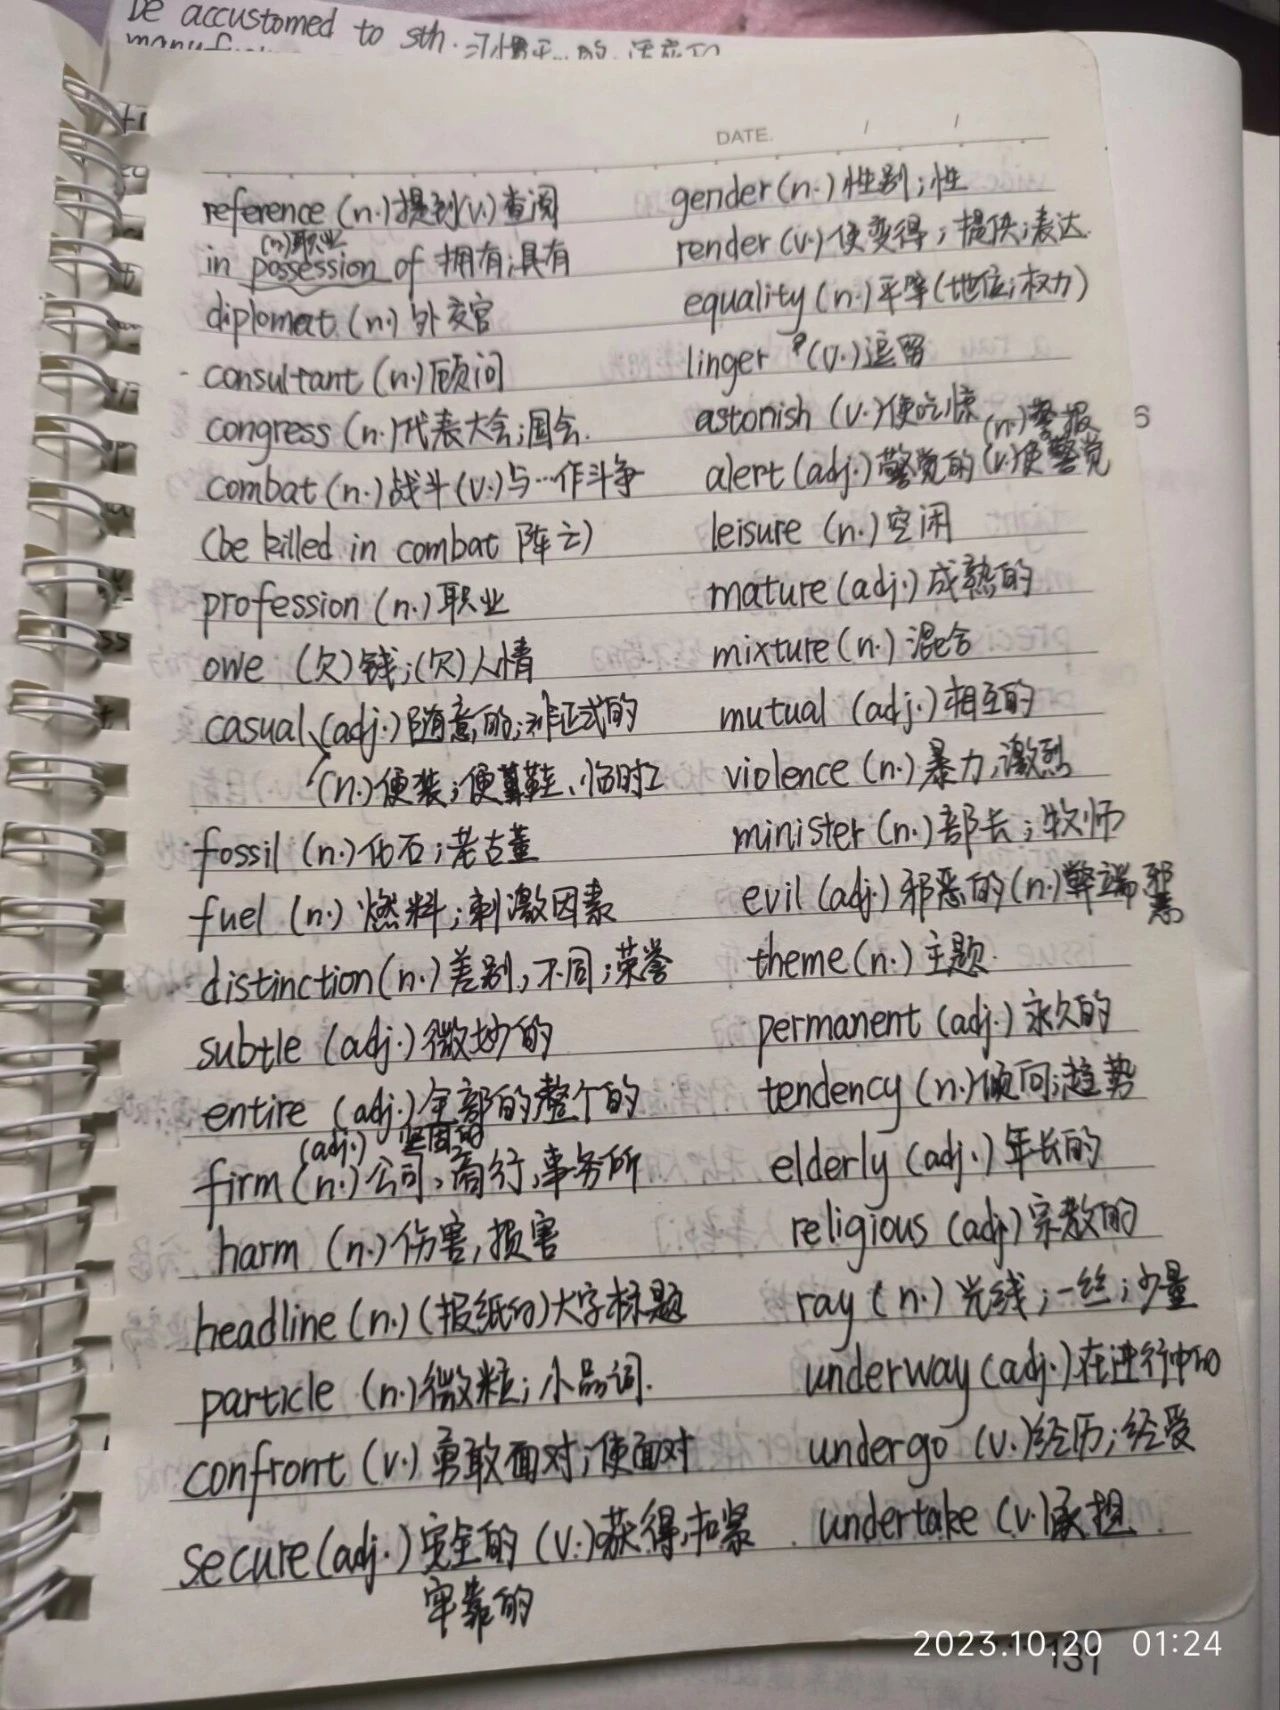 be accustomed to sth.
DATE.
reference (n.)提到(v.)查阅
(n)职业
in possession of 拥有;具有
diplomat (n.) 外交官
consultant (n.)顾问
congress (n.)代表大会;国会.
combat (n.)战斗(v.)与…作斗争
(be killed in combat 阵亡)
profession (n.)职业
owe (欠)钱;(欠)人情
casual (adj.)随意的;非正式的
(n.)便装;便鞋、临时工
fossil (n.)化石;老古董
fuel (n.) 燃料;刺激因素
distinction(n.)差别,不同;荣誉
subtle (adj.)微妙的
entire (adj.)全部的整个的
(adj.) 坚固的
firm (n.)公司,商行,事务所
harm (n.)伤害,损害
headline (n.)(报纸的)大字标题
particle (n.)微粒;小品词.
confront (v.)勇敢面对;使面对
secure(adj.)安全的 (v.)获得;扣紧
牢靠的
gender(n.)性别;性
render(v.)使变得;提供;表达.
equality (n.)平等(地位;权力)
linger (v.)逗留
astonish (v.)使吃惊
(n.)警报
alert (adj.)警觉的 (v.)使警觉
leisure (n.)空闲
mature(adj.)成熟的
mixture(n.)混合
mutual (adj.)相互的
violence (n.)暴力,激烈
minister (n.)部长;牧师
evil (adj.)邪恶的(n.)弊端 邪恶
theme(n.)主题.
permanent (adj.)永久的
tendency (n.)倾向;趋势
elderly (adj.)年长的
religious (adj)宗教的
ray (n.)光线;一丝;少量
underway(adj.)在进行中的
undergo (v.)经历;经受
undertake (v.)承担
6
131
2023.10.20 01:24